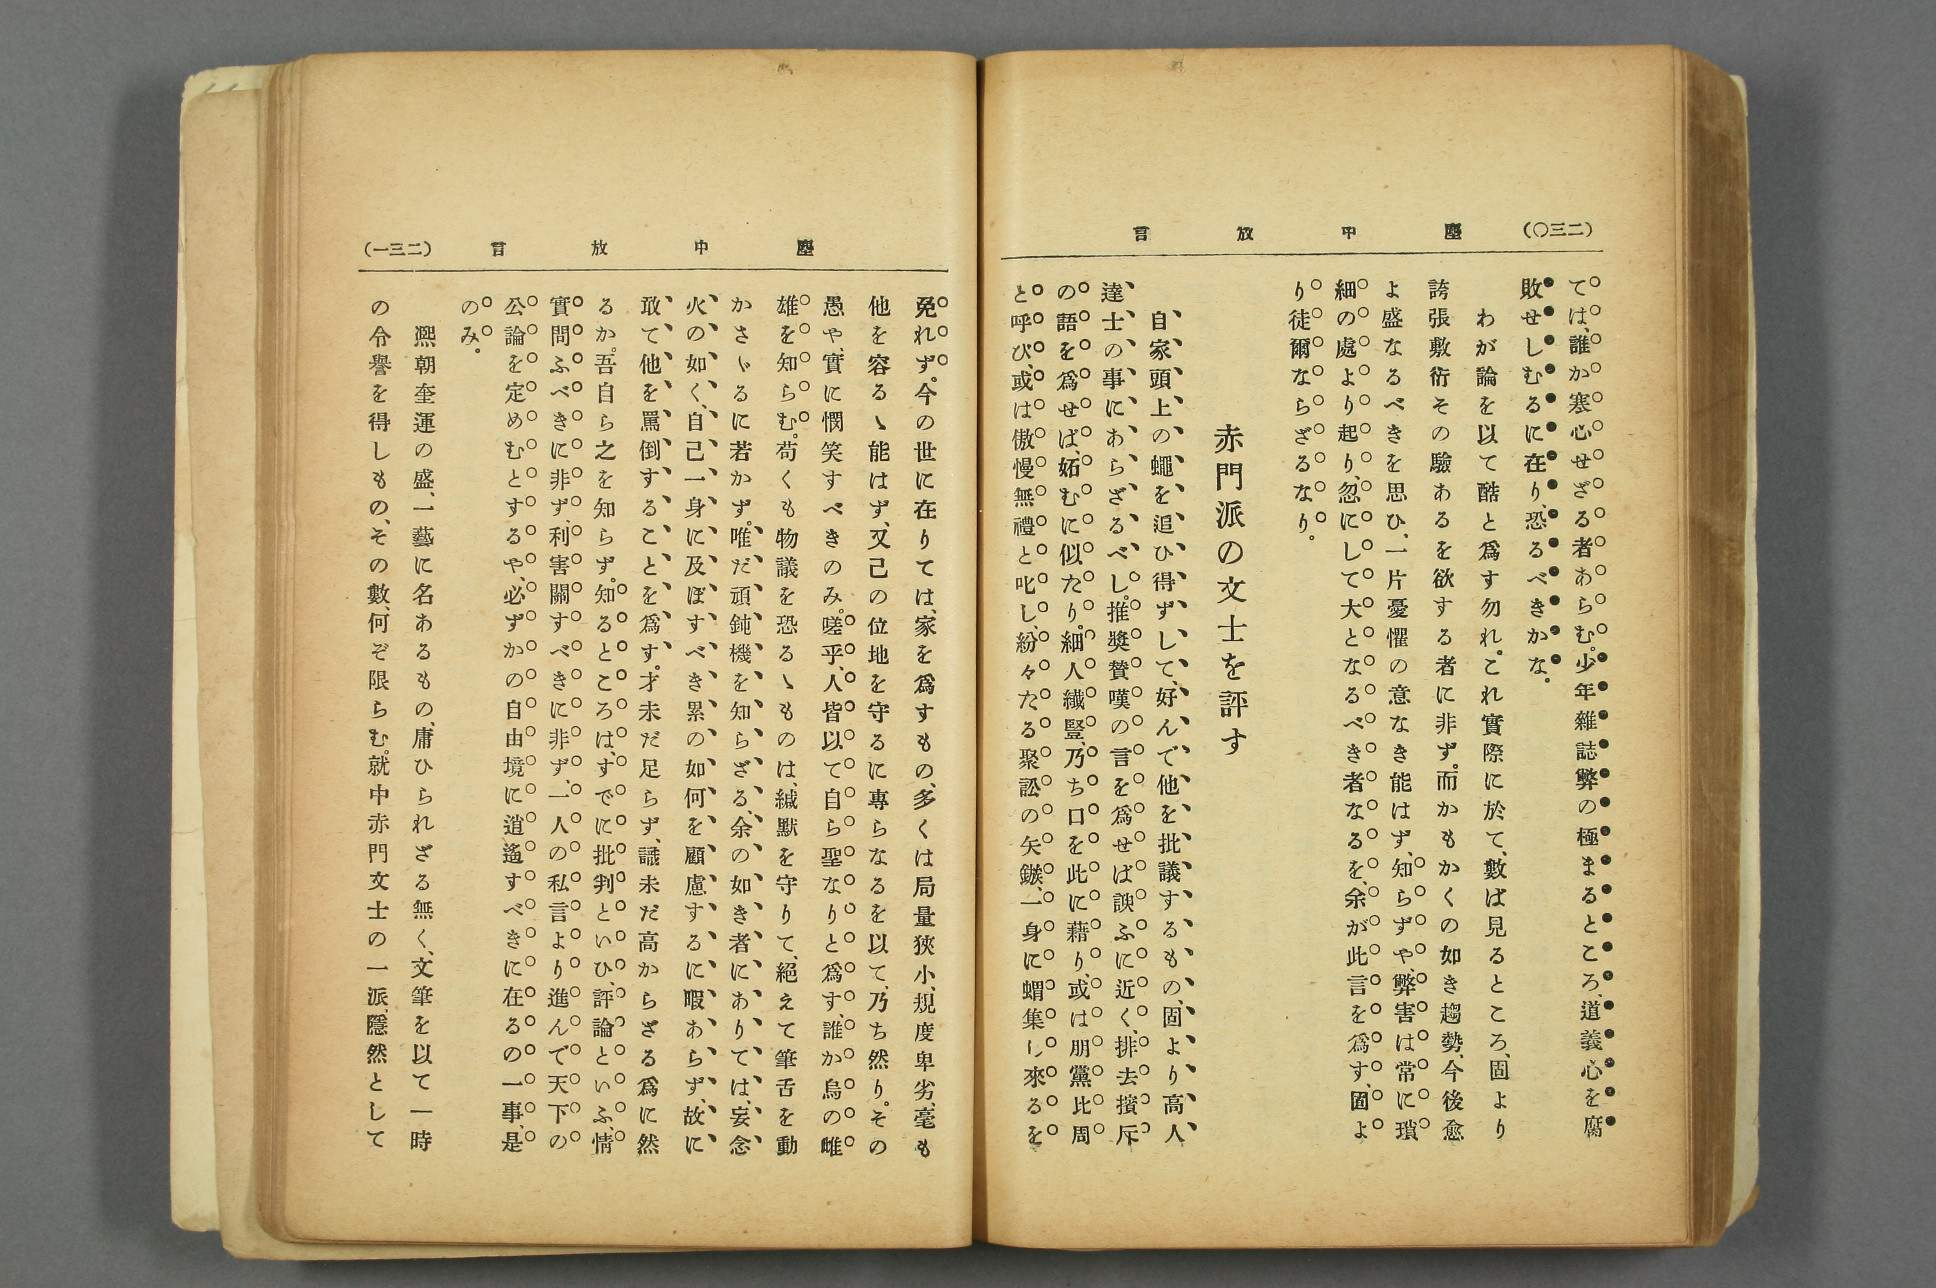 （二三〇）
塵中放言
ては、誰か寒心せざる者あらむ。少年雜誌弊の極まるところ、道義心を腐
敗せしむるに在り、恐るべきかな。
わが論を以て酷と爲す勿れ。これ實際に於て、數ば見るところ、固より
誇張敷衍その驗あるを欲する者に非ず。而かもかくの如き趨勢、今後愈
よ盛なるべきを思ひ、一片憂懼の意なき能はず、知らずや、弊害は常に瑣
細の處より起り、忽にして大となるべき者なるを、余が此言を爲す、固よ
り徒爾ならざるなり。
赤門派の文士を評す
自家頭上の蠅を追ひ得ずして、好んで他を批議するもの、固より高人
達士の事にあらざるべし。推奬賛嘆の言を爲せば諛ふに近く、排去擯斥
の語を爲せば、妬むに似たり。細人繊豎、乃ち口を此に藉り、或は朋黨比周
と呼び、或は傲慢無禮と叱し、紛々たる聚訟の矢鏃、一身に蝟集し來るを
（二三一）
塵中放言
免れず。今の世に在りては、家を爲すもの、多くは局量狹小、規度卑劣、毫も
他を容るゝ能はず、又己の位地を守るに專らなるを以て、乃ち然り。その
愚や、實に憫笑すべきのみ。嗟乎、人皆以て自ら聖なりと爲す、誰か烏の雌
雄を知らむ。苟くも物議を恐るゝものは、緘默を守りて、絕えて筆舌を動
かさゞるに若かず。唯だ頑鈍機を知らざる、余の如き者にありては、妄念
火の如く、自己一身に及ぼすべき累の如何を顧慮するに暇あらず、故に
敢て他を罵倒することを爲す。才未だ足らず、識未だ高からざる爲に然
るか。吾自ら之を知らず。知るところは、すでに批判といひ、評論といふ、情
實問ふべきに非ず、利害關すべきに非ず、一人の私言より進んで天下の
公論を定めむとするや、必ずかの自由境に逍遙すべきに在るの一事、是
のみ。
熙朝奎運の盛、一藝に名あるもの、庸ひられざる無く、文筆を以て一時
の令譽を得しもの、その數、何ぞ限らむ。就中赤門文士の一派、隱然として